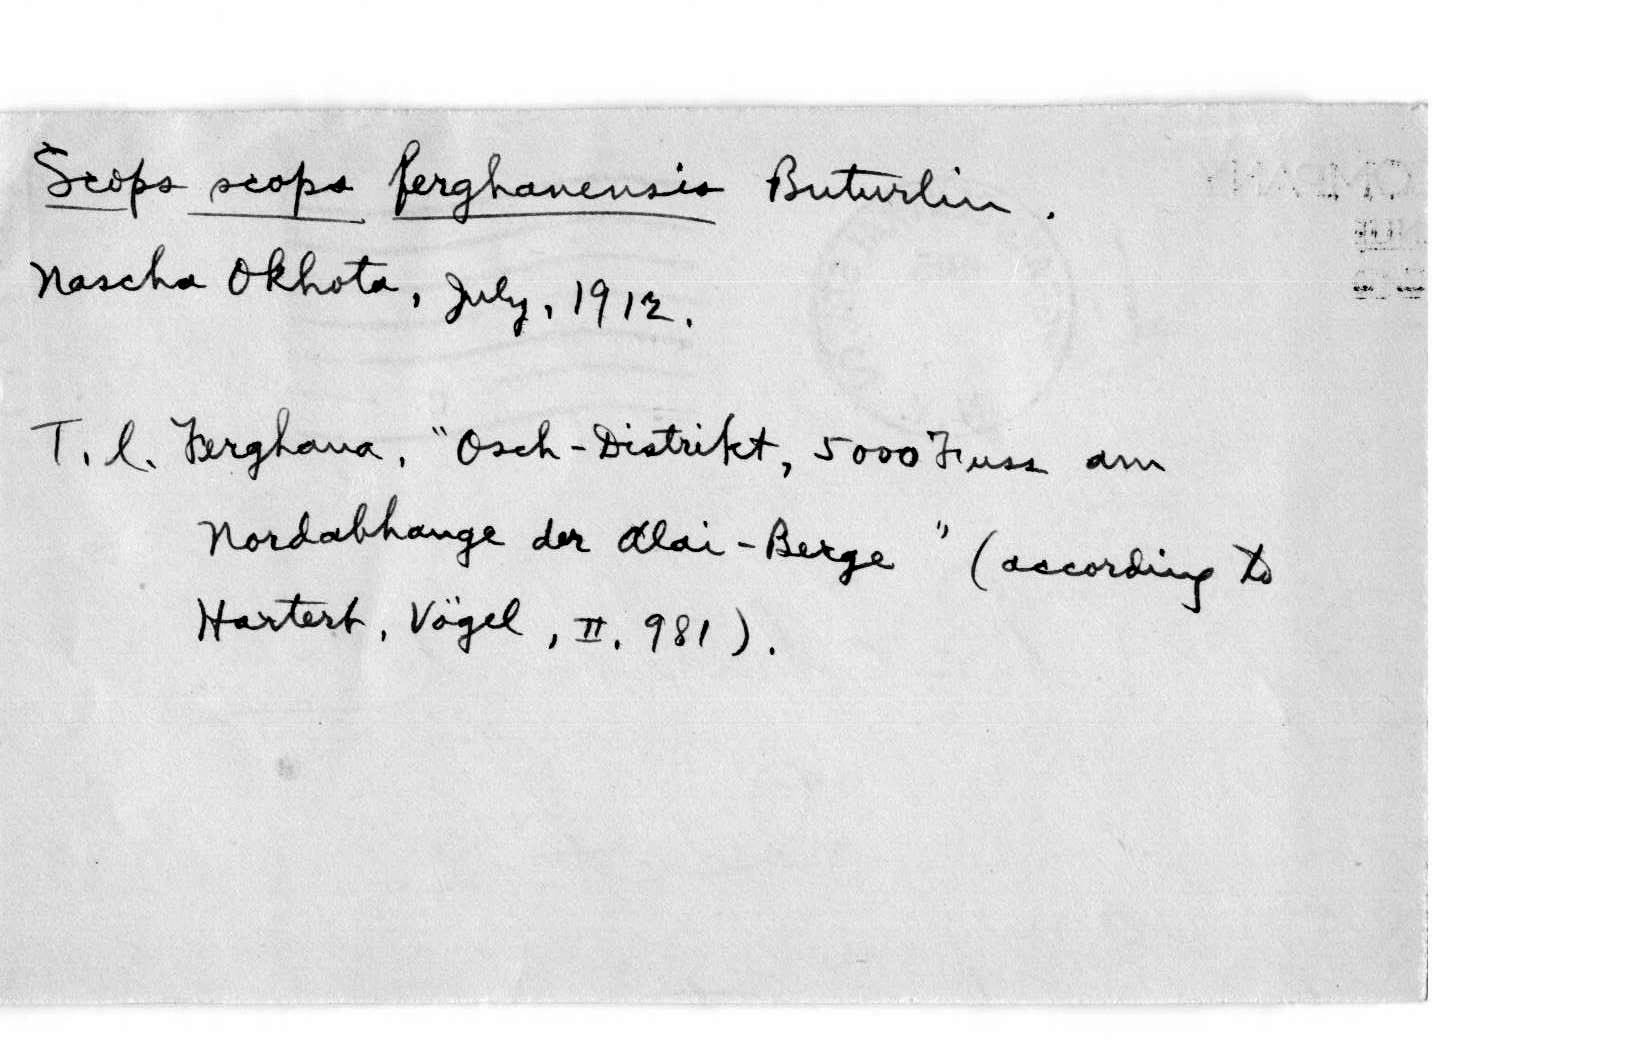 Scops scops ferghanensis Buturlin.
Nascha Okhota, July, 1912.
T. l. Ferghana, "Osch-Distrikt, 5000 Fuss am
Nordabhange der Alai-Berge" (according to
Hartert, Vögel, II. 981).